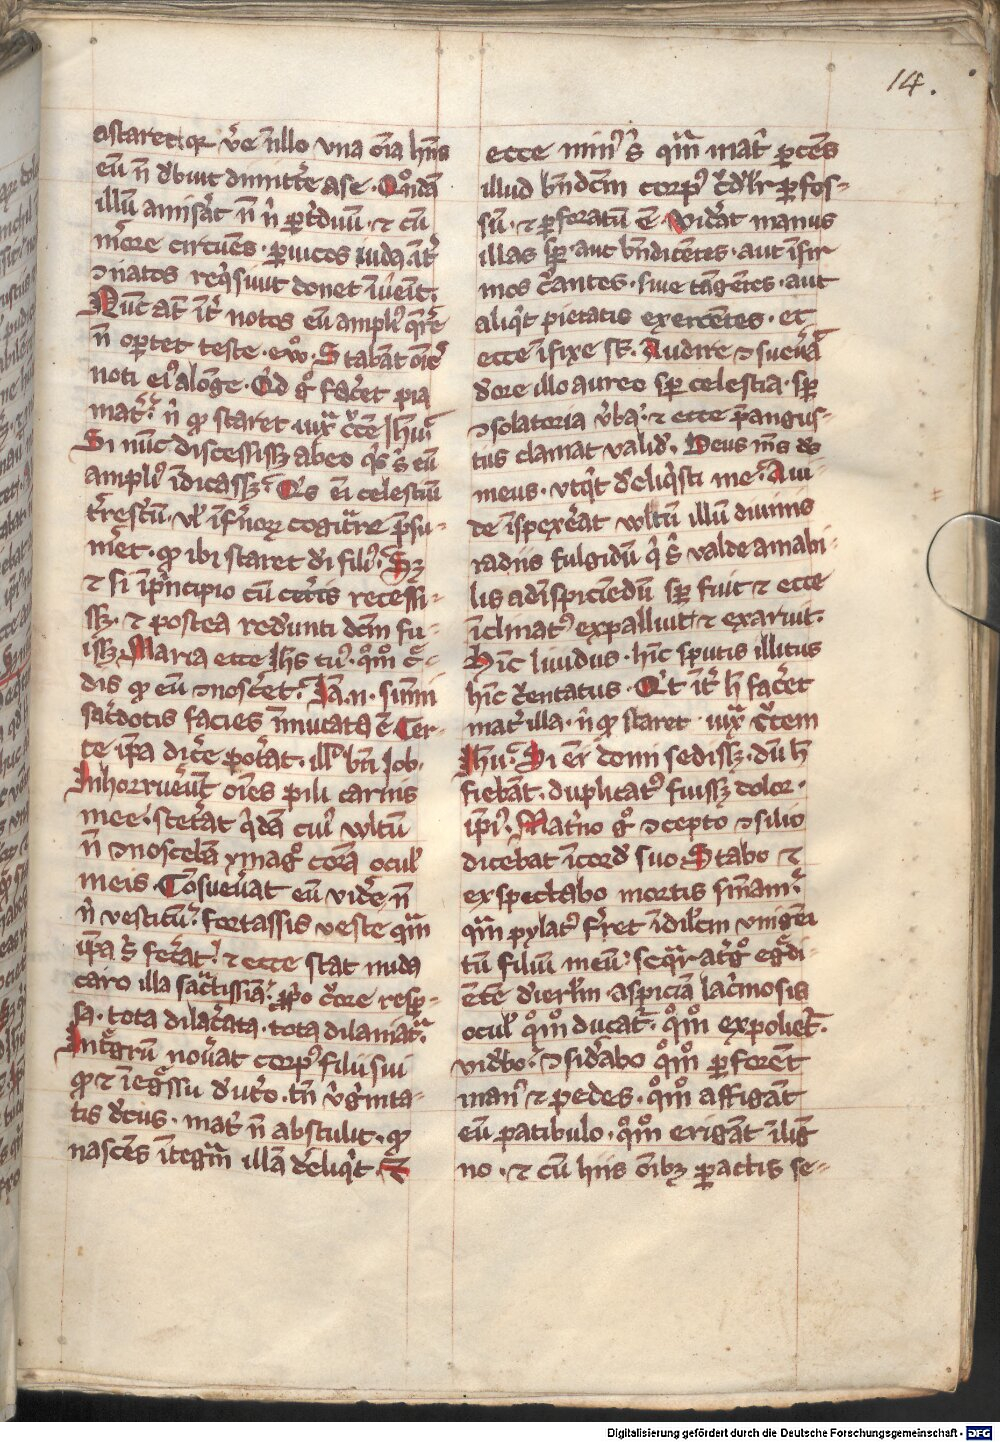 14.
astaret qr v̄e ī illo vna oīa hn̄s
eū n̄ dēbuit dimitt̄e a se. Qn̄dā
illū amis̄at n̄ n̄ p̱ t̓duū. ⁊ cū
m̓ore circūens. p̱ vicos iudā. īt̓
ↄnatos req̓siuit donec īuēīt.
Nūc aūt īt̓ notos eū ampli᷒ q̄rē
n̄ oportet teste. ew̓o. Stabāt oēs
noti ei᷒ a lōge. Qd g̊ fac̓et pia
mat̓. n̄ qd staret iux̄ c̓cē Ihū.
Si nūc discessiss̄ ab eo q̓s s̄ eū
ampli᷒ īdicass̄. Q̓s eī celestiū
t̓rest̓ū. vl̓ īf̓norꝝ cogit̄are p̄su-
m̓et. qd ibi staret dī fili᷒. Sꝫ
⁊ si ī p̓ncipio cū cet̓is recessi-
ssꝫ. ⁊ postea redeūti dc̄m fu-
issꝫ. Maria ecce Ihs tu᷒. q̊m̊ c̓-
dis qd eū ↄnosc̓et. Iā .n. sum̄i
sac̓dotis facies īmutata ē. Cer-
te ip̄a dic̓e pot̓at. ill̓d bt̄i Iob.
Inhorruer̄ūt oēs pili carnis
mee. stet̓at q̓dā cui᷒ vultū
n̄ ↄnoscebā ymago corā ocul̓
meis. Cōsueu̓at eū vid̓e n̄
n̄ vestitū. fortassis veste quā
ip̄a s̄ fec̓at. ⁊ ecce stat nuda
caro illa sāctissīa. p̄o c̓ore resp̱-
sa. tota dilac̓ata. tota dilaniata.
Int̓grū nou̓at corp᷒ filii sui
qd ⁊ ī eg̓ssu d̓ vt̓o. tn̄ v̓gīnita-
tis dec᷒. mat̓ n̄ abstulit. qd
nascēs īteg̓m illā d̓eliq̓t. ⁊
ecce nim᷒ s̄ qm̄ mat̓ p̱cēs
illud bn̄dc̄m corp᷒ c̓d̓l̓r p̱fos-
sū. ⁊ p̱foratū ē. Vid̓at manus
illas sp̱ aut bn̄dicētes. aut īfir
mos c̓antes. siue tāgētes. aut
aliq̓t pietatis exercētes. et
ecce īfixe st̄. Audire ↄsueu̓at
d̓ore illo aureo sp̱ celestia. sp̱
ↄsolatoria v̓ba. ⁊ ecce p̄ angus-
tus clamat valid̓. Deus m̄s ds̄
meus. vtq̓t d̓eliq̓sti me. Aui-
de īspexer̄at vultū illū diuinis
radiis fulgidū q̓ s̄ valde amabi-
lis ad īspiciēdū sp̱ fuit ⁊ ecce
īclinat᷒ expalluit ⁊ exaruit.
Hīc liuidus. hīc sputis illitus
hīc c̓entatus. Qt īt̓ h̄ fac̓et
mat̓ illa. n̄ qd staret. iux̄ c̓cem
Ihū. Si em̄ domi sedissꝫ. dū h̄
fiebāt. duplicat᷒ fuissꝫ dolor.
ip̄i᷒. Mat̓no g̊ ↄcepto ↄsilio
dicebat ī cord̓ suo Stabo ⁊
exspectabo mortis sn̄iam.
quā pylat᷒ f̓ret ī dil̓cm vnigēi
tū filiū meū. seq̄r at̓g̊ eg̓di-
ētē d̓ ierl̓m. aspiciā lac̓mosis
ocul̓ q̊m̊ ducat̄. q̊m̊ expoliet̄.
vid̓bo. ↄsid̓abo q̊m̊ p̱ forēt
man᷒ ⁊ pedes. q̊m̊ affigāt
eū patibulo. q̊m̊ erigāt ī lig̓
no. ⁊ cū hiis oībꝫ p̱actis se-
Digitalisierung gefördert durch die Deutsche Forschungsgemeinschaft - DFG